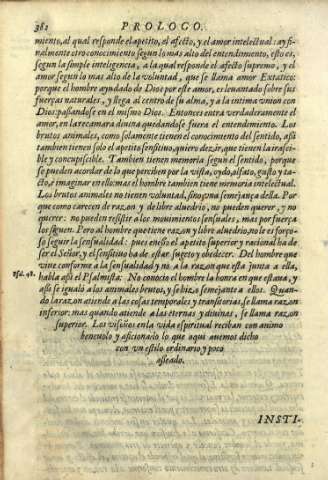 382 PROLOGO.
miento, al qual responde el apetito, el afecto, y el amor intelectual: ay fi-
nalmente otro conocimiento segun lo mas alto del entendimiento, esto es,
segun la simple inteligencia, a la qual responde el afecto supremo, y el
amor segun lo mas alto de la voluntad, que se llama amor Extatico:
porque el hombre ayudado de Dios por este amor, es leuantado sobre sus
fuerças naturales, y llega al centro de su alma, y a la intima vnion con
Dios: passandose en el mismo Dios. Entonces entra verdaderamente el
amor, en la recamara diuina quedandose fuera el entendimiento. Los
brutos animales, como solamente tienen el conocimiento del sentido, assi
tambien tienen solo el apetito sensitiuo, quiero dezir, que tienen la irasci-
ble y concupiscible. Tambien tienen memoria segun el sentido, porque
se pueden acordar de lo que perciben por la vista, oydo, olfato, gusto y ta-
cto, e imaginar en ello: mas el hombre tambien tiene memoria intelectual.
Los brutos animales no tienen voluntad, sino vna semejança della. Por
que como carecen de razon y de libre aluedrio, no pueden querer, y no
querer: no pueden resistir a los mouimientos sensuales, mas por fuerça
los siguen. Pero al hombre que tiene razon y libre aluedrio, no le es forço-
so seguir la sensualidad: pues en esso el apetito superior y racional ha de
ser el Señor, y el sensitiuo ha de estar sugeto y obedecer. Del hombre que
viue conforme a la sensualidad y no a la razon que està junta a ella,
Psal. 48. habla assi el Psalmista: No conocio el hombre la honra en que estaua, y
assi se igualò a los animales brutos, y se hizo semejante a ellos. Quan-
do la razon atiende a las cosas temporales y transitorias, se llama razon
inferior: mas quando atiende a las eternas y diuinas, se llama razon
superior. Los visoños en la vida espiritual reciban con animo
beneuolo y aficionado lo que aqui auemos dicho
con vn estilo ordinario y poco
asseado.
INSTI-